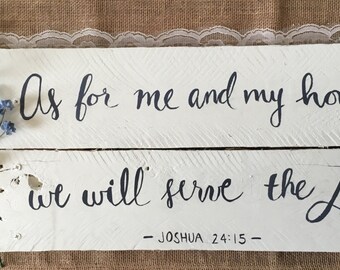 As for me and my ho
we will serve the L
- JOSHUA 24:15 -